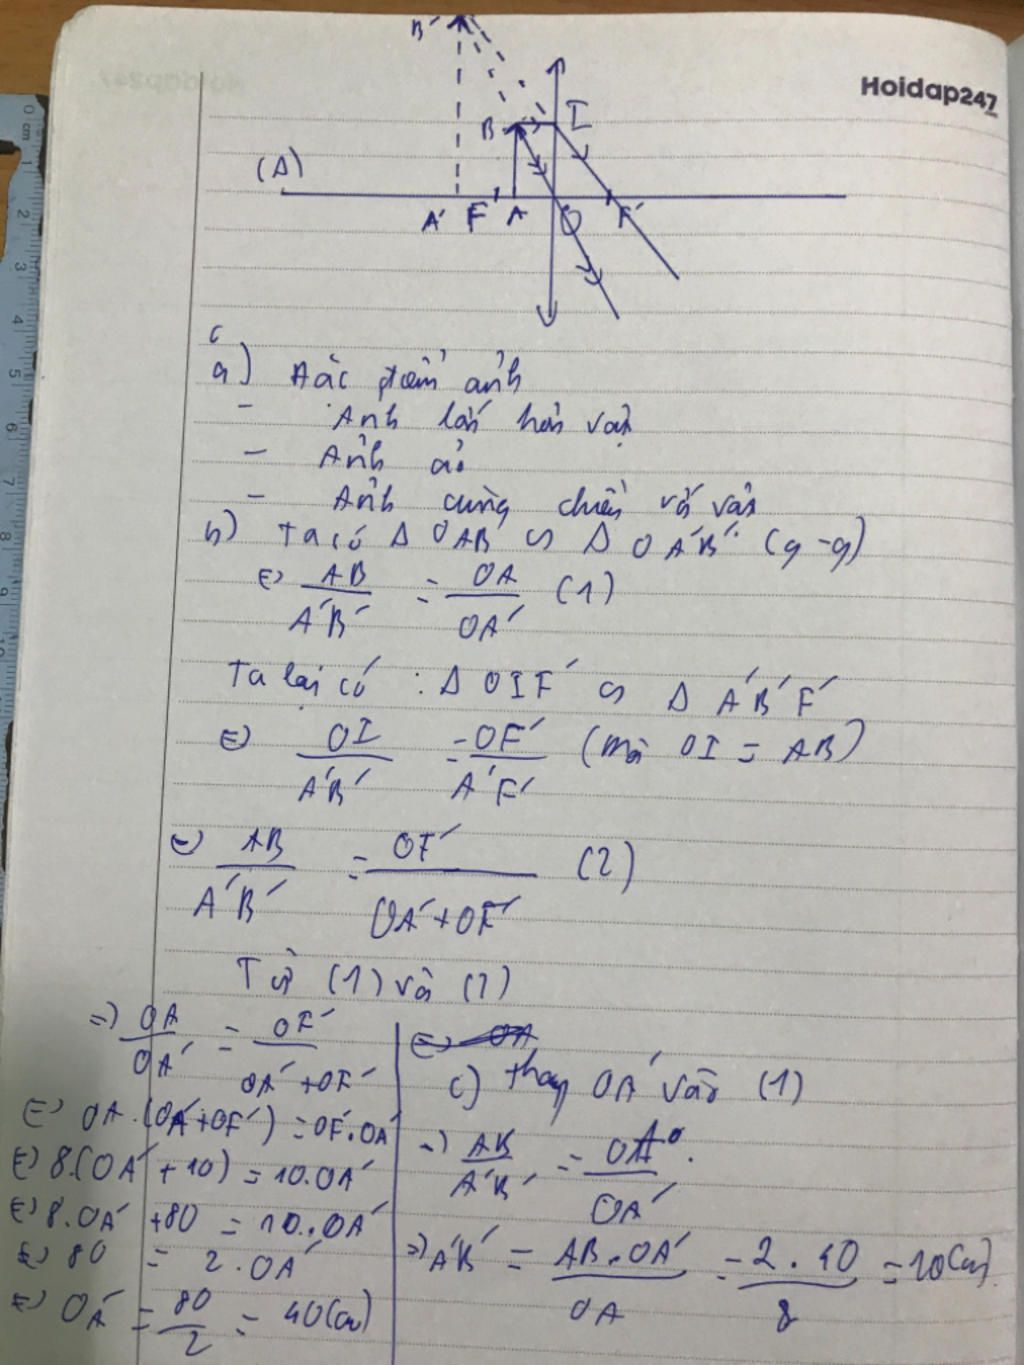 B'
Hoidap247
B I
(Δ)
A' F' A O F'
a) Đặc điểm ảnh
- Ảnh lớn hơn vật
- Ảnh ảo
- Ảnh cùng chiều với vật
b) Ta có Δ OAB ∽ Δ OA'B' (g-g)
⇔ AB/A'B' = OA/OA' (1)
Ta lại có : Δ OIF' ∽ Δ A'B'F'
⇔ OI/A'B' = OF'/A'F' (mà OI = AB)
⇔ AB/A'B' = OF'/(OA'+OF') (2)
Từ (1) và (2)
⇒ OA/OA' = OF'/(OA'+OF')
⇔ OA.(OA'+OF') = OF'.OA'
⇔ 8.(OA'+10) = 10.OA'
⇔ 8.OA' +80 = 10.OA'
⇔ 80 = 2.OA'
⇔ OA' = 80/2 = 40(cm)
c) thay OA' vào (1)
⇒ AB/A'B' = OA/OA'
⇒ A'B' = AB.OA'/OA = 2.40/8 = 10(cm)
0 cm 1 2 3 4 5 6 7 8 9